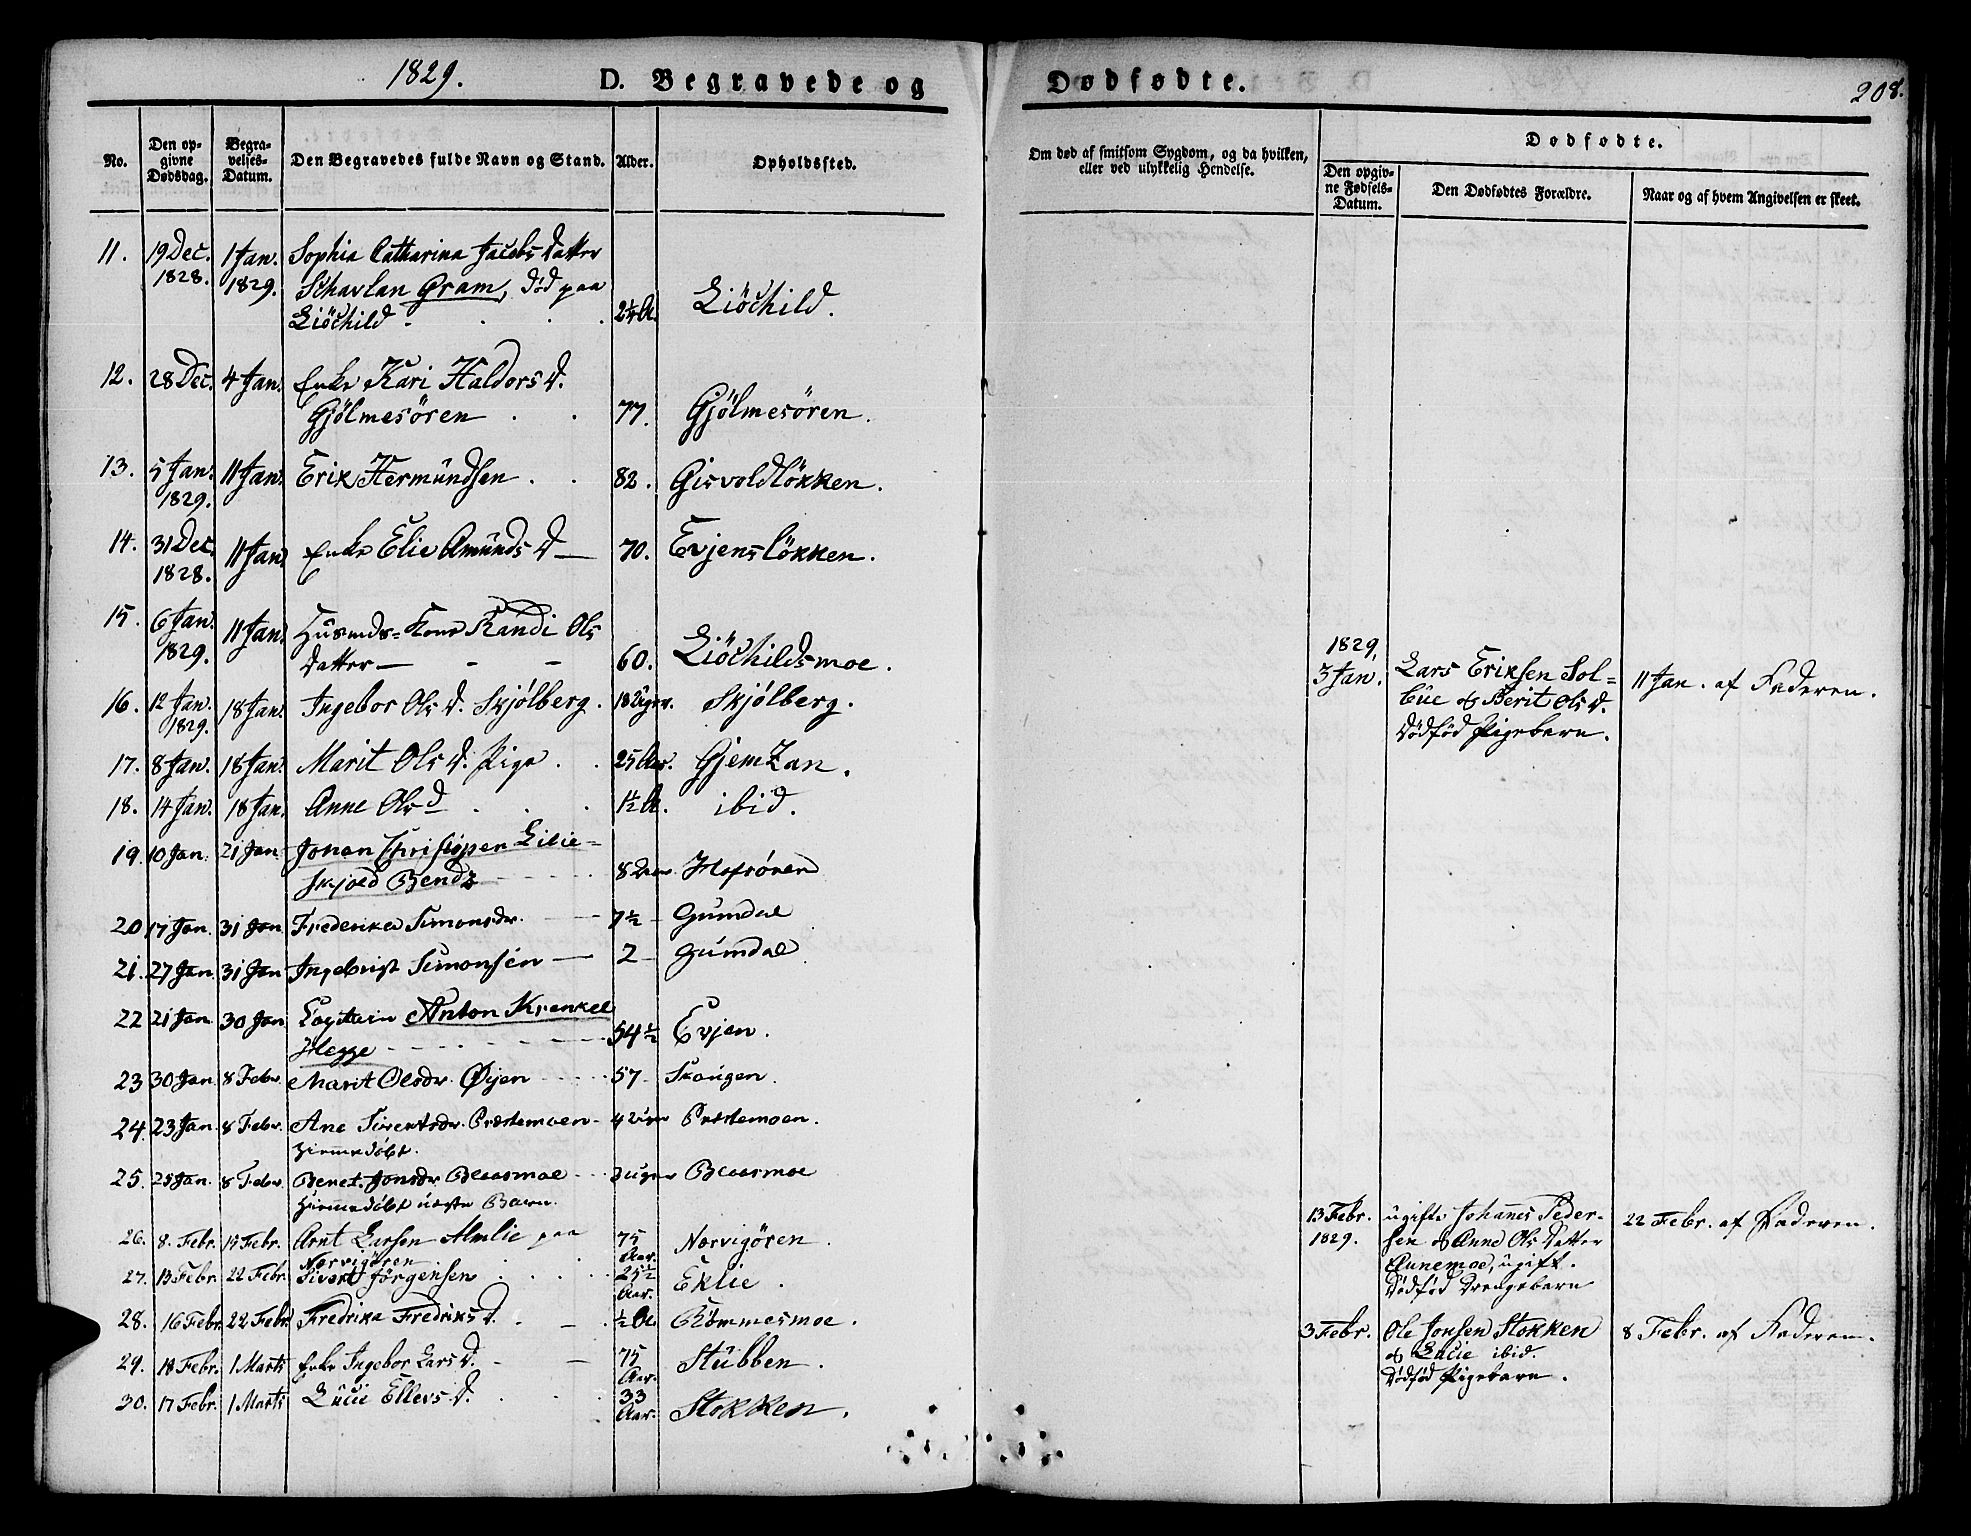 1829.
D. Begravede og
Dødfødte.
208.
No.
Den op-
givne
Dødsdag.
Begra-
velses-
Datum.
Den Begravedes fulde Navn og Stand.
Alder.
Opholdssted.
Om død af smitsom Sygdom, og da hvilken,
eller ved ulykkelig Hendelse.
Dødfødte.
Den opgiv-
ne Fødsels-
Datum.
Den Dødfødtes Forældre.
Naar og af hvem Angivelsen er skeet.
11. 19 Dec. 1 Jan. Sophia Catharina Jacobs Datter
1828. 1829. Schavlan Gram, død paa
Liöchild - 2¼ A. Liöchild.
12. 28 Dec. 4 Jan. Enke Kari Haldors D.
Gjölmesören . . 77. Gjölmesören.
13. 5 Jan. 11 Jan. Erik Hermundsen . . 82. Gisvoldlökken.
1829.
14. 31 Dec. 11 Jan. Enke Elie Amunds D — 70. Evjenslökken.
1828.
15. 6 Jan. 11 Jan. Husmds= Kone Randi Ols
1829. Datter — - - 60. Liöchildsmoe.
16. 12 Jan. 18 Jan. Ingebor Ols D. Skjölberg. 18 Uger. Skjölberg.
1829.
17. 8 Jan. 18 Jan. Marit Ols D. Pige . . 25 Aar. Gjemzan.
18. 14 Jan. 18 Jan. Anne Ols D . . . 1½ A. ibid.
19. 10 Jan. 21 Jan Johan Christopher Lilie=
skjold Bendz 8 Hofsören
20 17 Jan. 31 Jan Frederika Simonsdr. 7½ - Gumdal
21. 27 Jan. 31 Jan Ingebrigt Simonsen — 2 - Gumdal
22 21 Jan 30 Jan Capitain Anton Krenkel
Hegge 54½ Evjen.
23 30 Jan 8 Febr. Marit Olsdr. Øyen 57 - Skougen.
24. 23 Jan 8 Febr. Ane Sivertsdr. Præstemoen - 4 Præstemoen.
Hjemmedöbt.
25. 25 Jan. 8 Febr. Beret Jonsdr Blaasmoe 3 uger Blaasmoe
Hjemmedöbt uægte Barn.
26. 8. Febr. 15 Febr. Arnt Larsen Almlie paa 75 Norvigören.
Norvigören Aar.
27. 13 Febr. 22 Febr. Sivert Jörgensen . . . . 25½ Eklie.
Aar.
28. 16 Febr. 22 Febr. Fredrika Fredriks D. . - . ½ A Römmesmoe.
29. 18 Febr. 1 Marts Enke Ingebor Lars D. - — 75 Stubben.
Aar.
30. 17 Febr. 1 Marts Lucie Ellevs D. . . 33 Stokken.
Aar.
1829.
3 Jan. Lars Eriksen Sol= 11 Jan. af Faderen.
bue & Berit Ols D.
Dödfød Pigebarn.
13 Febr. ugifte Johanes Peder- 22 Febr. af Faderen.
1829. sen & Anne Ols Datter
Aunemoe, ugift.
Dödfød Drengebarn
3 Febr. Ole Jonsen Stokken 8 Febr. af Faderen.
& Lucie ibid.
Dödfød Pigebarn.